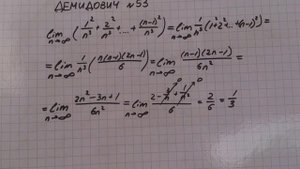 ДЕМИДОВИЧ №53
lim n→∞ (1²/n³ + 2²/n³ + ... + (n-1)²/n³) = lim n→∞ 1/n³ (1²+2²+...+(n-1)²) =
= lim n→∞ 1/n³ (n(n-1)(2n-1)/6) = lim n→∞ (n-1)(2n-1)/6n² =
= lim n→∞ 2n²-3n+1/6n² = lim n→∞ 2-3/n+1/n²/6 = 2/6 = 1/3